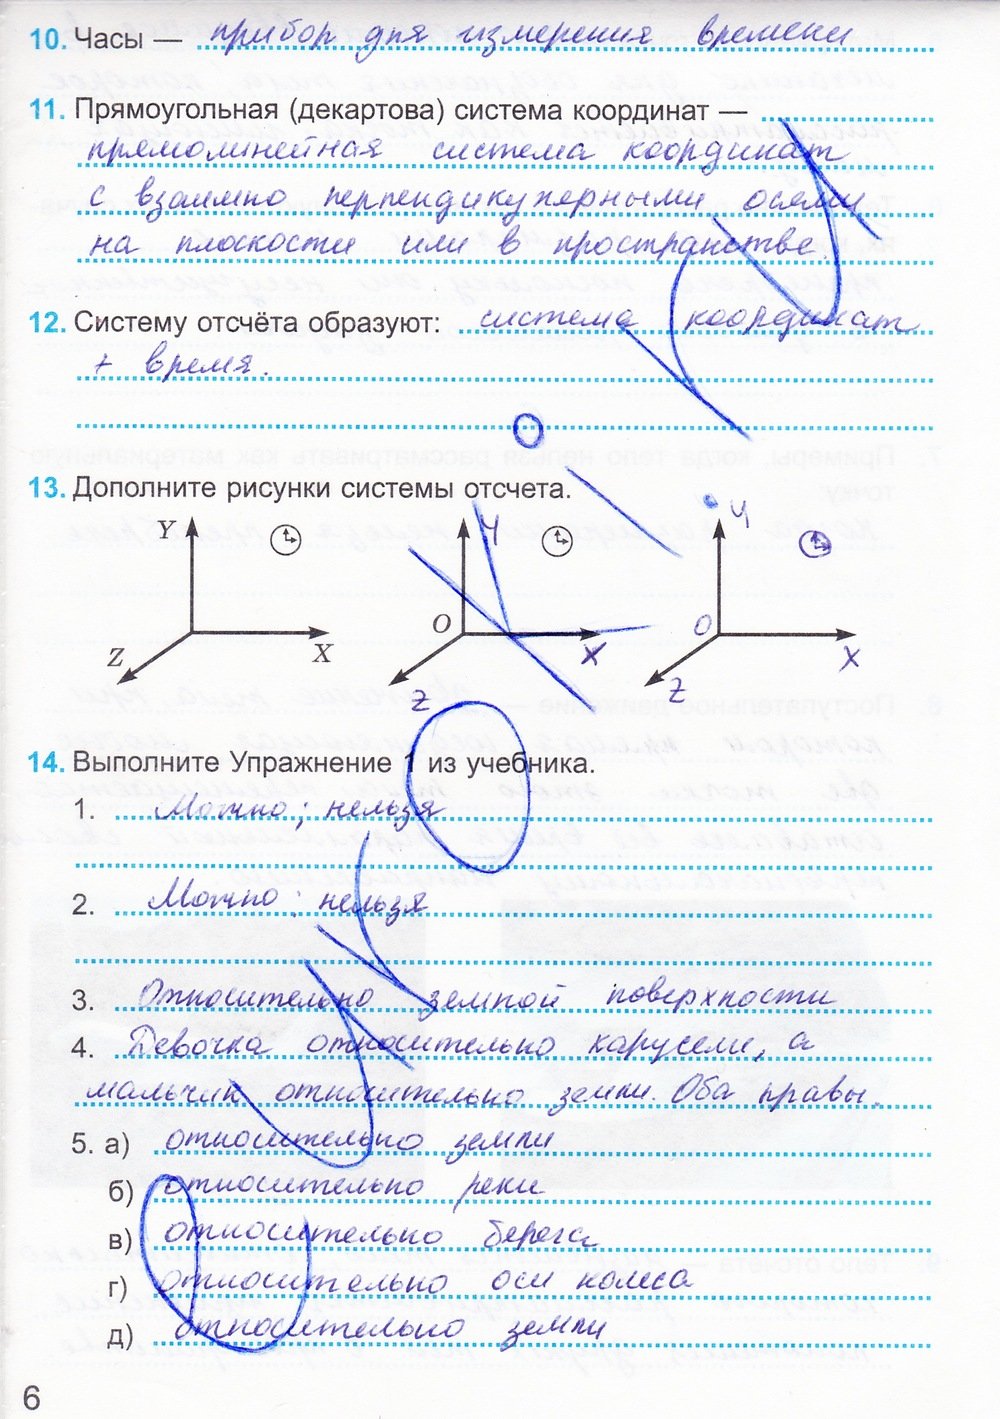 10. Часы — прибор для измерения времени
11. Прямоугольная (декартова) система координат —
прямолинейная система координат
с взаимно перпендикулярными осями
на плоскости или в пространстве.
12. Систему отсчёта образуют: система координат
+ время.
13. Дополните рисунки системы отсчета.
Y Y Y
O O
Z X X X
Z Z
14. Выполните Упражнение 1 из учебника.
1. Можно; нельзя
2. Можно; нельзя
3. Относительно земной поверхности
4. Девочка относительно карусели, а
мальчик относительно земли. Оба правы.
5. а) относительно земли
б) относительно реки
в) относительно берега
г) относительно оси колеса
д) относительно земли
6